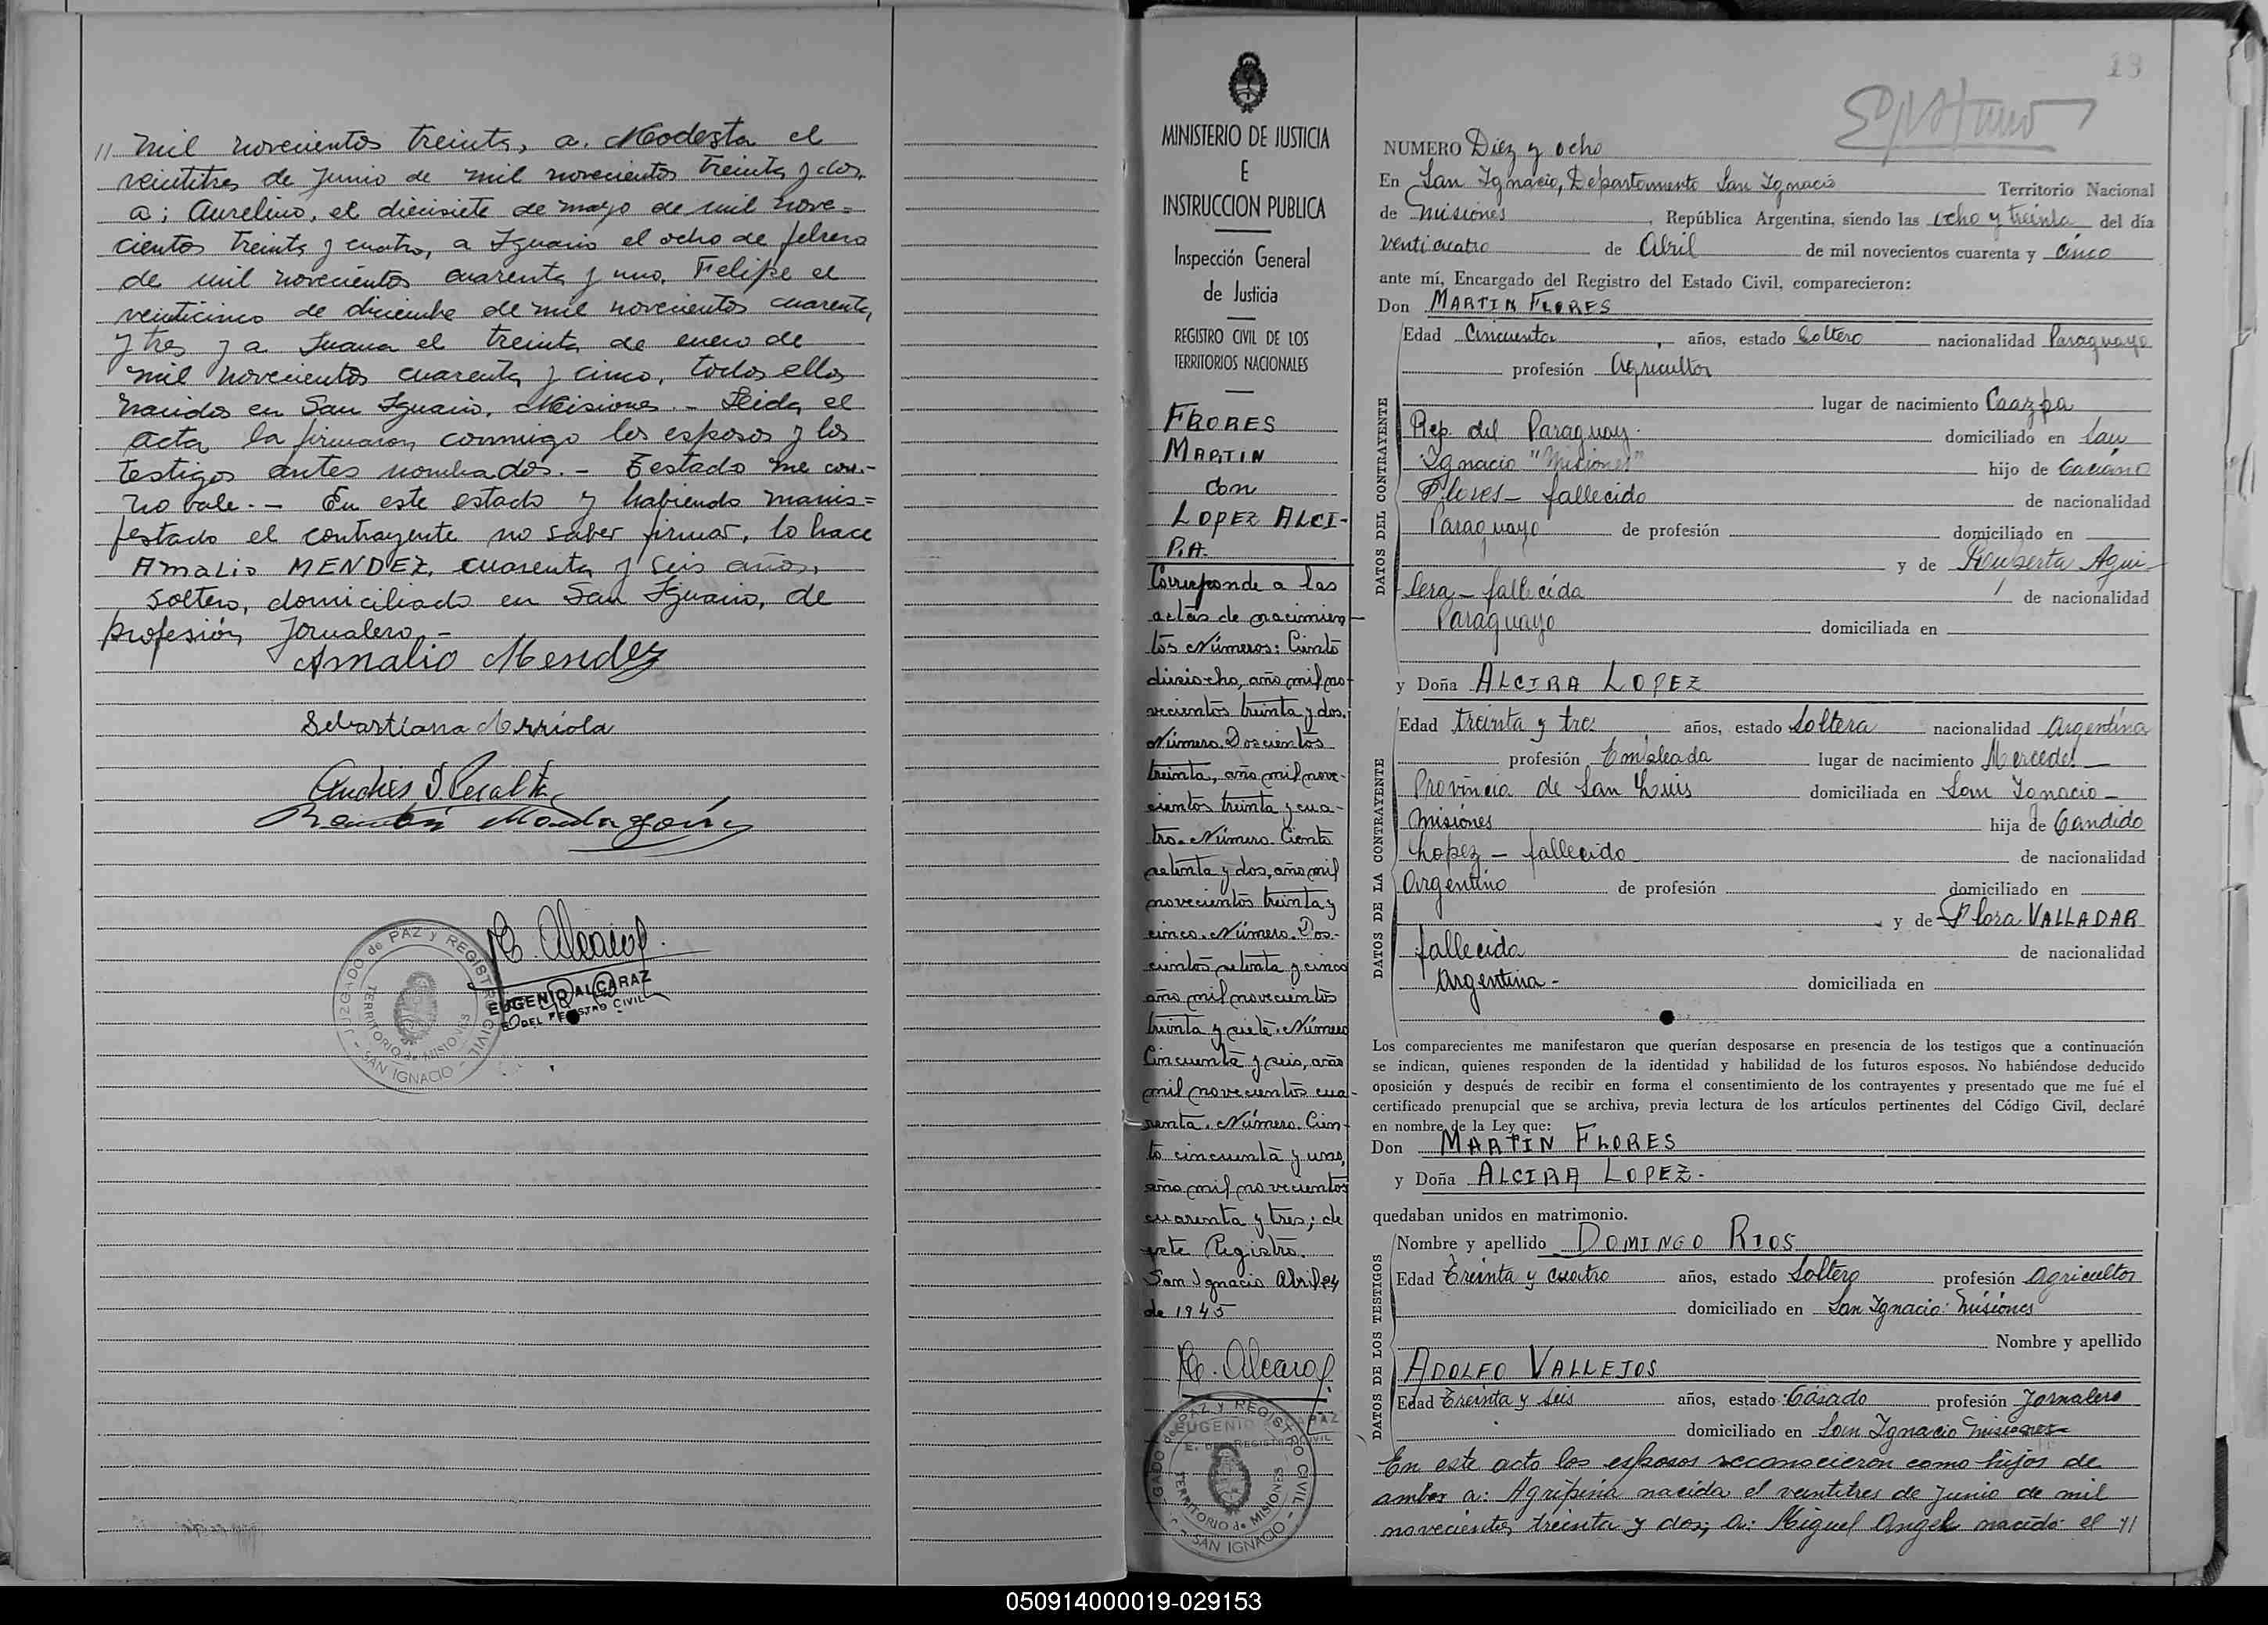 11 mil novecientos treinta, a. Modesta el
veintitres de Junio de mil novecientos treinta y dos.
a; Aurelino, el diecisiete de mayo de mil nove=
cientos treinta y cuatro, a Ignacio el ocho de febrero
de mil novecientos cuarenta y uno, Felipe el
veinticinco de diciembre de mil novecientos cuarenta,
y tres y a Juana el treinta de enero de
mil novecientos cuarenta y cinco, todos ellos
nacidos en San Ignacio, Misiones. - Leida el
acta, la firmaron conmigo los esposos y los
testigos antes nombrados. - Testado me con.-
no vale. - En este estado y habiendo manis=
festado el contrayente no saber firmar, lo hace
Amalio MENDEZ, cuarenta y seis años,
soltero, domiciliado en San Ignacio, de
profesión Jornalero. -
Amalio Mendez
Sebastiana Arriola
Andrés D. Peralta
Ramón Mondragón
E. Alcaraz
EUGENIO ALCARAZ
E. DEL REGISTRO CIVIL
JUZGADO de PAZ y REGISTRO CIVIL
TERRITORIO de MISIONES
- SAN IGNACIO -
MINISTERIO DE JUSTICIA
E
INSTRUCCION PUBLICA
Inspección General
de Justicia
REGISTRO CIVIL DE LOS
TERRITORIOS NACIONALES
FLORES
MARTIN
con
LOPEZ ALCI-
RA.
Corresponde a las
actas de nacimien-
tos Números: Ciento
dieciocho, año mil no-
vecientos treinta y dos.
Número. Doscientos
treinta, año mil nove-
cientos treinta y cua-
tro. Número. Ciento
setenta y dos, año mil
novecientos treinta y
cinco. Número. Dos-
cientos setenta y cinco
año mil novecientos
treinta y siete. Número
Cincuenta y seis, año
mil novecientos cua-
renta. Número. Cien-
to cincuenta y uno,
año mil novecientos
cuarenta y tres; de
este Registro.
San Ignacio Abril 24
de 1945
E. Alcaraz
EUGENIO ALCARAZ
E. DEL REGISTRO CIVIL
JUZGADO de PAZ y REGISTRO CIVIL
TERRITORIO de MISIONES
- SAN IGNACIO -
19
NUMERO Diez y ocho
En San Ignacio, Departamento San Ignacio Territorio Nacional
de Misiones, República Argentina, siendo las ocho y treinta del día
venticuatro de Abril de mil novecientos cuarenta y cinco
ante mí, Encargado del Registro del Estado Civil, comparecieron:
Don MARTIN FLORES
DATOS DEL CONTRAYENTE
Edad Cincuenta, años, estado Soltero nacionalidad Paraguayo
profesión Agricultor
lugar de nacimiento Caazpa
Rep. del Paraguay. domiciliado en San
Ignacio "Misiones" hijo de Casiano
Flores - fallecido de nacionalidad
Paraguayo de profesión domiciliado en
y de Ruperta Agui-
lera - fallecida de nacionalidad
Paraguaya domiciliada en
y Doña ALCIRA LOPEZ
DATOS DE LA CONTRAYENTE
Edad treinta y tres años, estado Soltera nacionalidad Argentina
profesión Empleada lugar de nacimiento Mercedes
Provincia de San Luis domiciliada en San Ignacio -
Misiones hija de Candido
Lopez - fallecido de nacionalidad
Argentino de profesión domiciliado en
y de Flora VALLADAR
fallecida de nacionalidad
Argentina - domiciliada en
Los comparecientes me manifestaron que querían desposarse en presencia de los testigos que a continuación
se indican, quienes responden de la identidad y habilidad de los futuros esposos. No habiéndose deducido
oposición y después de recibir en forma el consentimiento de los contrayentes y presentado que me fué el
certificado prenupcial que se archiva, previa lectura de los artículos pertinentes del Código Civil, declaré
en nombre de la Ley que:
Don MARTIN FLORES
y Doña ALCIRA LOPEZ.
quedaban unidos en matrimonio.
DATOS DE LOS TESTIGOS
Nombre y apellido DOMINGO RIOS
Edad Treinta y cuatro años, estado Soltero profesión Agricultor
domiciliado en San Ignacio Misiones
Nombre y apellido
ADOLFO VALLEJOS
Edad Treinta y seis años, estado Casado profesión Jornalero
domiciliado en San Ignacio Misiones
En este acto los esposos reconocieron como hijos de
ambos a: Agripina nacida el veintitres de Junio de mil
novecientos treinta y dos; a: Miguel Angel nacido el 11
050914000019-029153